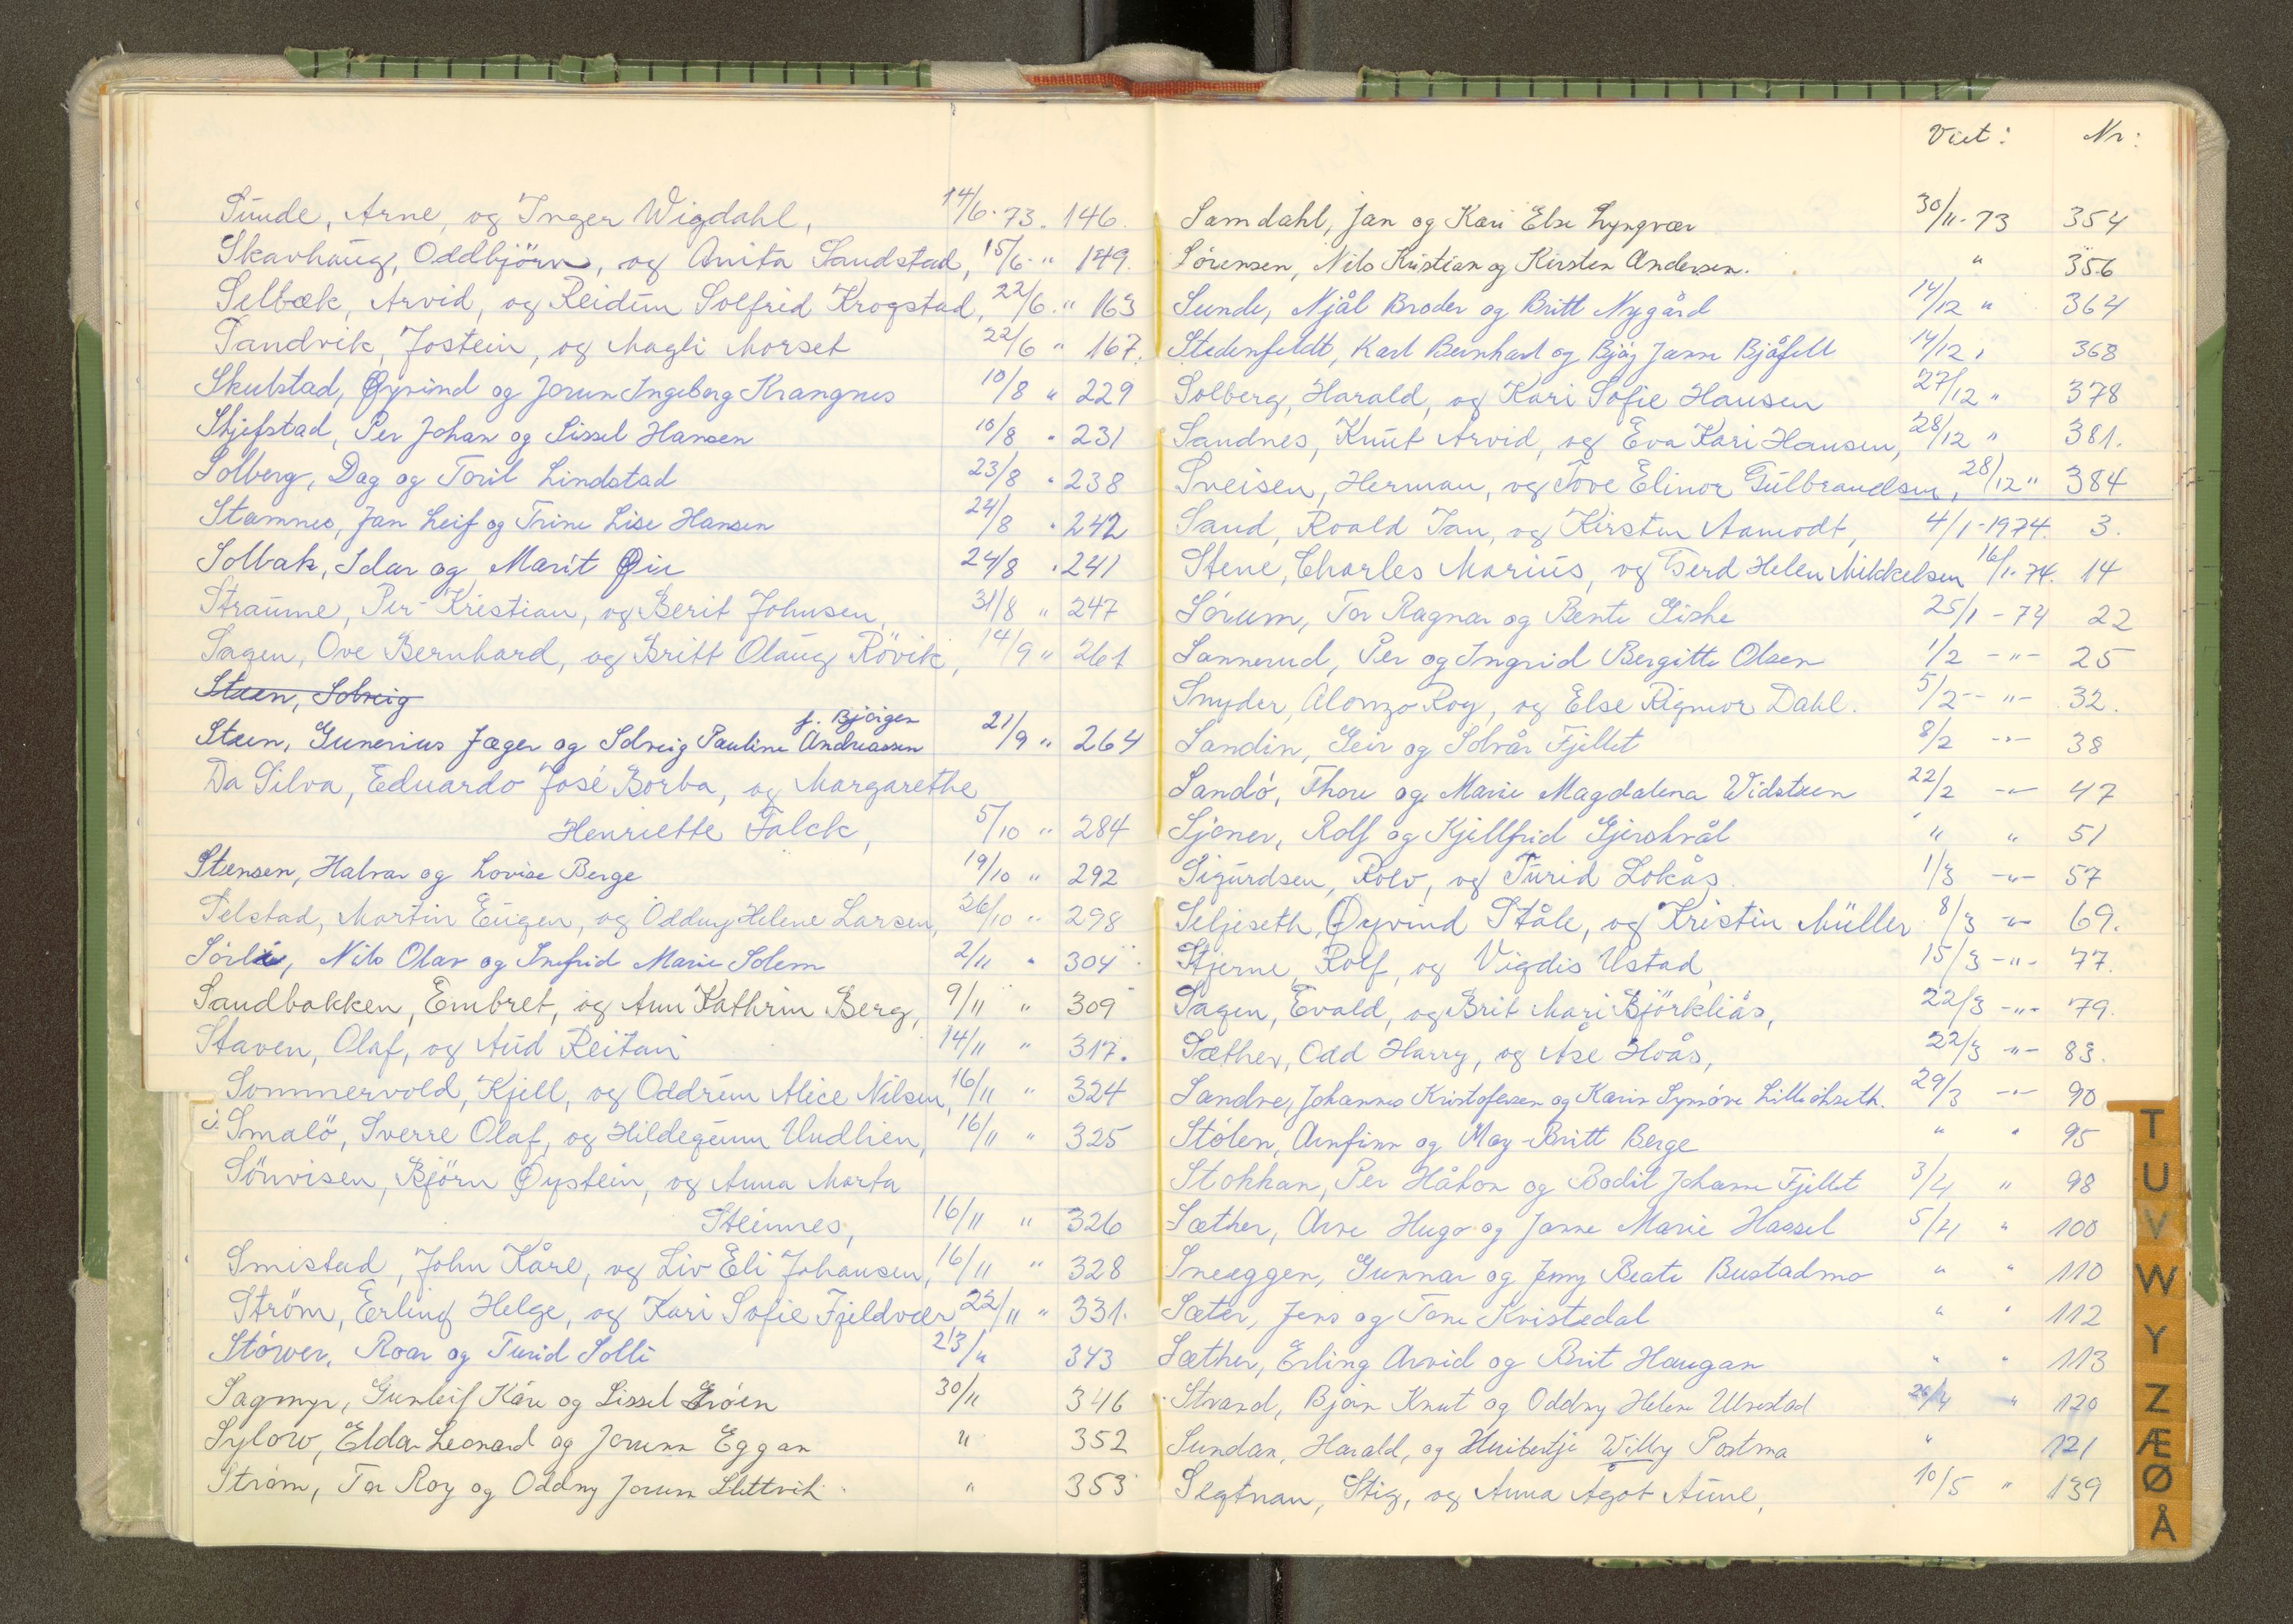 Sunde, Arne, og Inger Wigdahl, 14/6-73. 146.
Skavhaug, Oddbjörn, og Anita Sandstad, 15/6 " 149.
Selbæk, Arvid, og Reidun Solfrid Krogstad, 22/6 " 163
Sandvik, Jostein, og Magli Morset 22/6 " 167.
Skulstad, Øyvind og Jorun Ingeborg Krangnes 10/8 " 229
Skjefstad, Per Johan og Sissel Hansen 10/8 " 231
Solberg, Dag og Toril Lindstad 23/8 " 238
Stamnes, Jan Leif og Trine Lise Hansen 24/8 " 242
Solbak, Idar og Marit Øie 24/8 " 241
Straume, Per Kristian, og Berit Johnsen, 31/8 " 247
Sagen, Ove Bernhard, og Britt Olaug Rövik, 14/9 " 261
Steen, Solveig
f. Bjørgen
Steen, Gunerius Jæger og Solveig Pauline Andreassen 21/9 " 264
Da Silva, Eduardo José Borba, og Margarethe
Henriette Falck, 5/10 " 284
Steensen, Halvar og Lovise Berge 19/10 " 292
Selstad, Martin Eugen, og Oddny Helene Larsen, 26/10 " 298
Sörli, Nils Olav og Snefrid Marie Solem 2/11 " 304
Sandbakken, Embret, og Ann Kathrin Berg, 9/11 " 309
Staven, Olaf, og Aud Reitan 14/11 " 317.
Sommervold, Kjell, og Oddrun Alice Nilsen, 16/11 " 324
Smalö, Sverre Olaf, og Hildegunn Undlien, 16/11 " 325
Sönvisen, Björn Øystein, og Anna Marta
Steinnes, 16/11 " 326
Smistad, John Kåre, og Liv Eli Johansen, 16/11 " 328
Ström, Erling Helge, og Kari Sofie Fjeldvær, 22/11 " 331.
Størver, Roar og Turid Solli 23/11 343
Sagmyr, Gunleif Kåre og Sissel Grøen 30/11 346
Sylow, Eldar Leonard og Jorunn Eggan " 352
Strøm, Tor Roy og Oddny Jorun Slettvik " 353
Viet: Nr:
Samdahl, Jan og Kari Else Lyngvær 30/11-73 354
Sørensen, Nils Kristian og Kirsten Andersen. " 356
Sunde, Njål Broder og Britt Nygård 14/12 " 364
Stedenfeldt, Karl Bernhard og Bjøg Janne Bjåfell 14/12 " 368
Solberg, Harald, og Kari Sofie Hansen 27/12 " 378
Sandnes, Knut Arvid, og Eva Kari Hansen, 28/12 " 381.
Sveisen, Herman, og Tove Elinor Gulbrandsen, 28/12 " 384
Sand, Roald Jan, og Kirsten Aamodt, 4/1-1974. 3.
Stene, Charles Marius, og Gerd Helen Mikkelsen 16/1-74. 14
Sörum, Tor Ragnar og Bente Giske 25/1-74 22
Sannerud, Per og Ingrid Bergitte Olsen 1/2 -"- 25
Snyder, Alonzo Roy, og Else Rigmor Dahl. 5/2 -"- 32.
Sandin, Geir og Solvår Fjellet 8/2 -"- 38
Sandö, Thore og Marie Magdalena Widsteen 22/2 -"- 47
Sjøner, Rolf og Kjellfrid Gjersvål " " 51
Sigurdsen, Rolv, og Turid Lokås 1/3 -"- 57
Seljeseth, Øyvind Ståle, og Kristin Müller 8/3 -"- 69.
Stjerne, Rolf, og Vigdis Ustad, 15/3 -"- 77.
Sagen, Evald, og Brit Mari Björkliås, 22/3 -"- 79.
Sæther, Odd Harry, og Åse Hoås, 22/3 -"- 83.
Sandnes, Johannes Kristofersen og Karin Synøve Lillielseth. 29/3 -"- 90
Stölen, Arnfinn og May-Britt Berge " " 95
Stokkan, Per Håkon og Bodil Johanne Fjellet 3/4 " 98
Sæther, Arve Hugo og Janne Marie Hassel 5/4 " 100
Sneeggen, Gunnar og Jenny Beate Bustadmo " " 110
Sæter, Jens og Tone Kvistedal " " 112
Sæther, Erling Arvid og Brit Haugan " " 113
Strand, Bjørn Knut og Oddny Helene Ulvestad 26/4 " 120
Sundan, Harald, og Huibertje Willy Postma " 121
Slegtnan, Stig, og Anna Ågot Aune, 10/5 " 139
T
U
V
W
Y
Z
Æ
Ø
Å